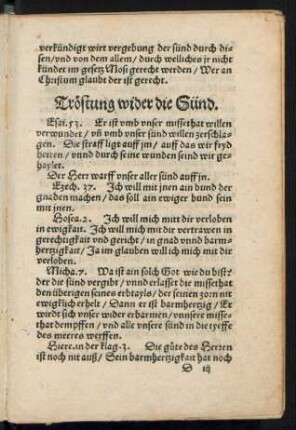 verkündigt wirt vergebung der sünd durch di-
sen/vnd von dem allem/ durch welliches jr nicht
kündet im gesetz Mosi gerecht werden/ Wer an
Christum glaubt der ist gerecht.
Tröstung wider die Sünd.
Esai. 53. Er ist vmb vnser missethat willen
verwundet/ vñ vmb vnser sünd willen zerschla-
gen. Die straff ligt auff jm/ auff das wir fryd
hetten/ vnnd durch seine wunden seind wir ge-
haylet.
Der Herr warff vnser aller sünd auff jn.
Ezech. 37. Ich will mit jnen ain bund der
gnaden machen/ das soll ain ewiger bund sein
mit jnen.
Hosea. 2. Ich will mich mitt dir verloben
in ewigkait. Ich will mich mit dir vertrawen in
gerechtigkait vnd gericht/ in gnad vnnd barm-
hertzigkait/ Ja im glauben will ich mich mit dir
verloben.
Micha. 7. Wa ist ain solch Got wie du bist?
der die sünd vergibt/ vnnd erlasst die missethat
den übrigen seines erbtayls/ der seinen zorn nit
ewigklich erhelt/ Dann er ist barmhertzig/ Er
wirdt sich vnser wider erbarmen/ vnnsere misse-
that dempffen/ vnd alle vnsere sünd in die tyeffe
des meeres werffen.
Hiere. in der klag. 3. Die güte des Herren
ist noch nit auß/ Sein barmhertzigkait hat noch
D iij